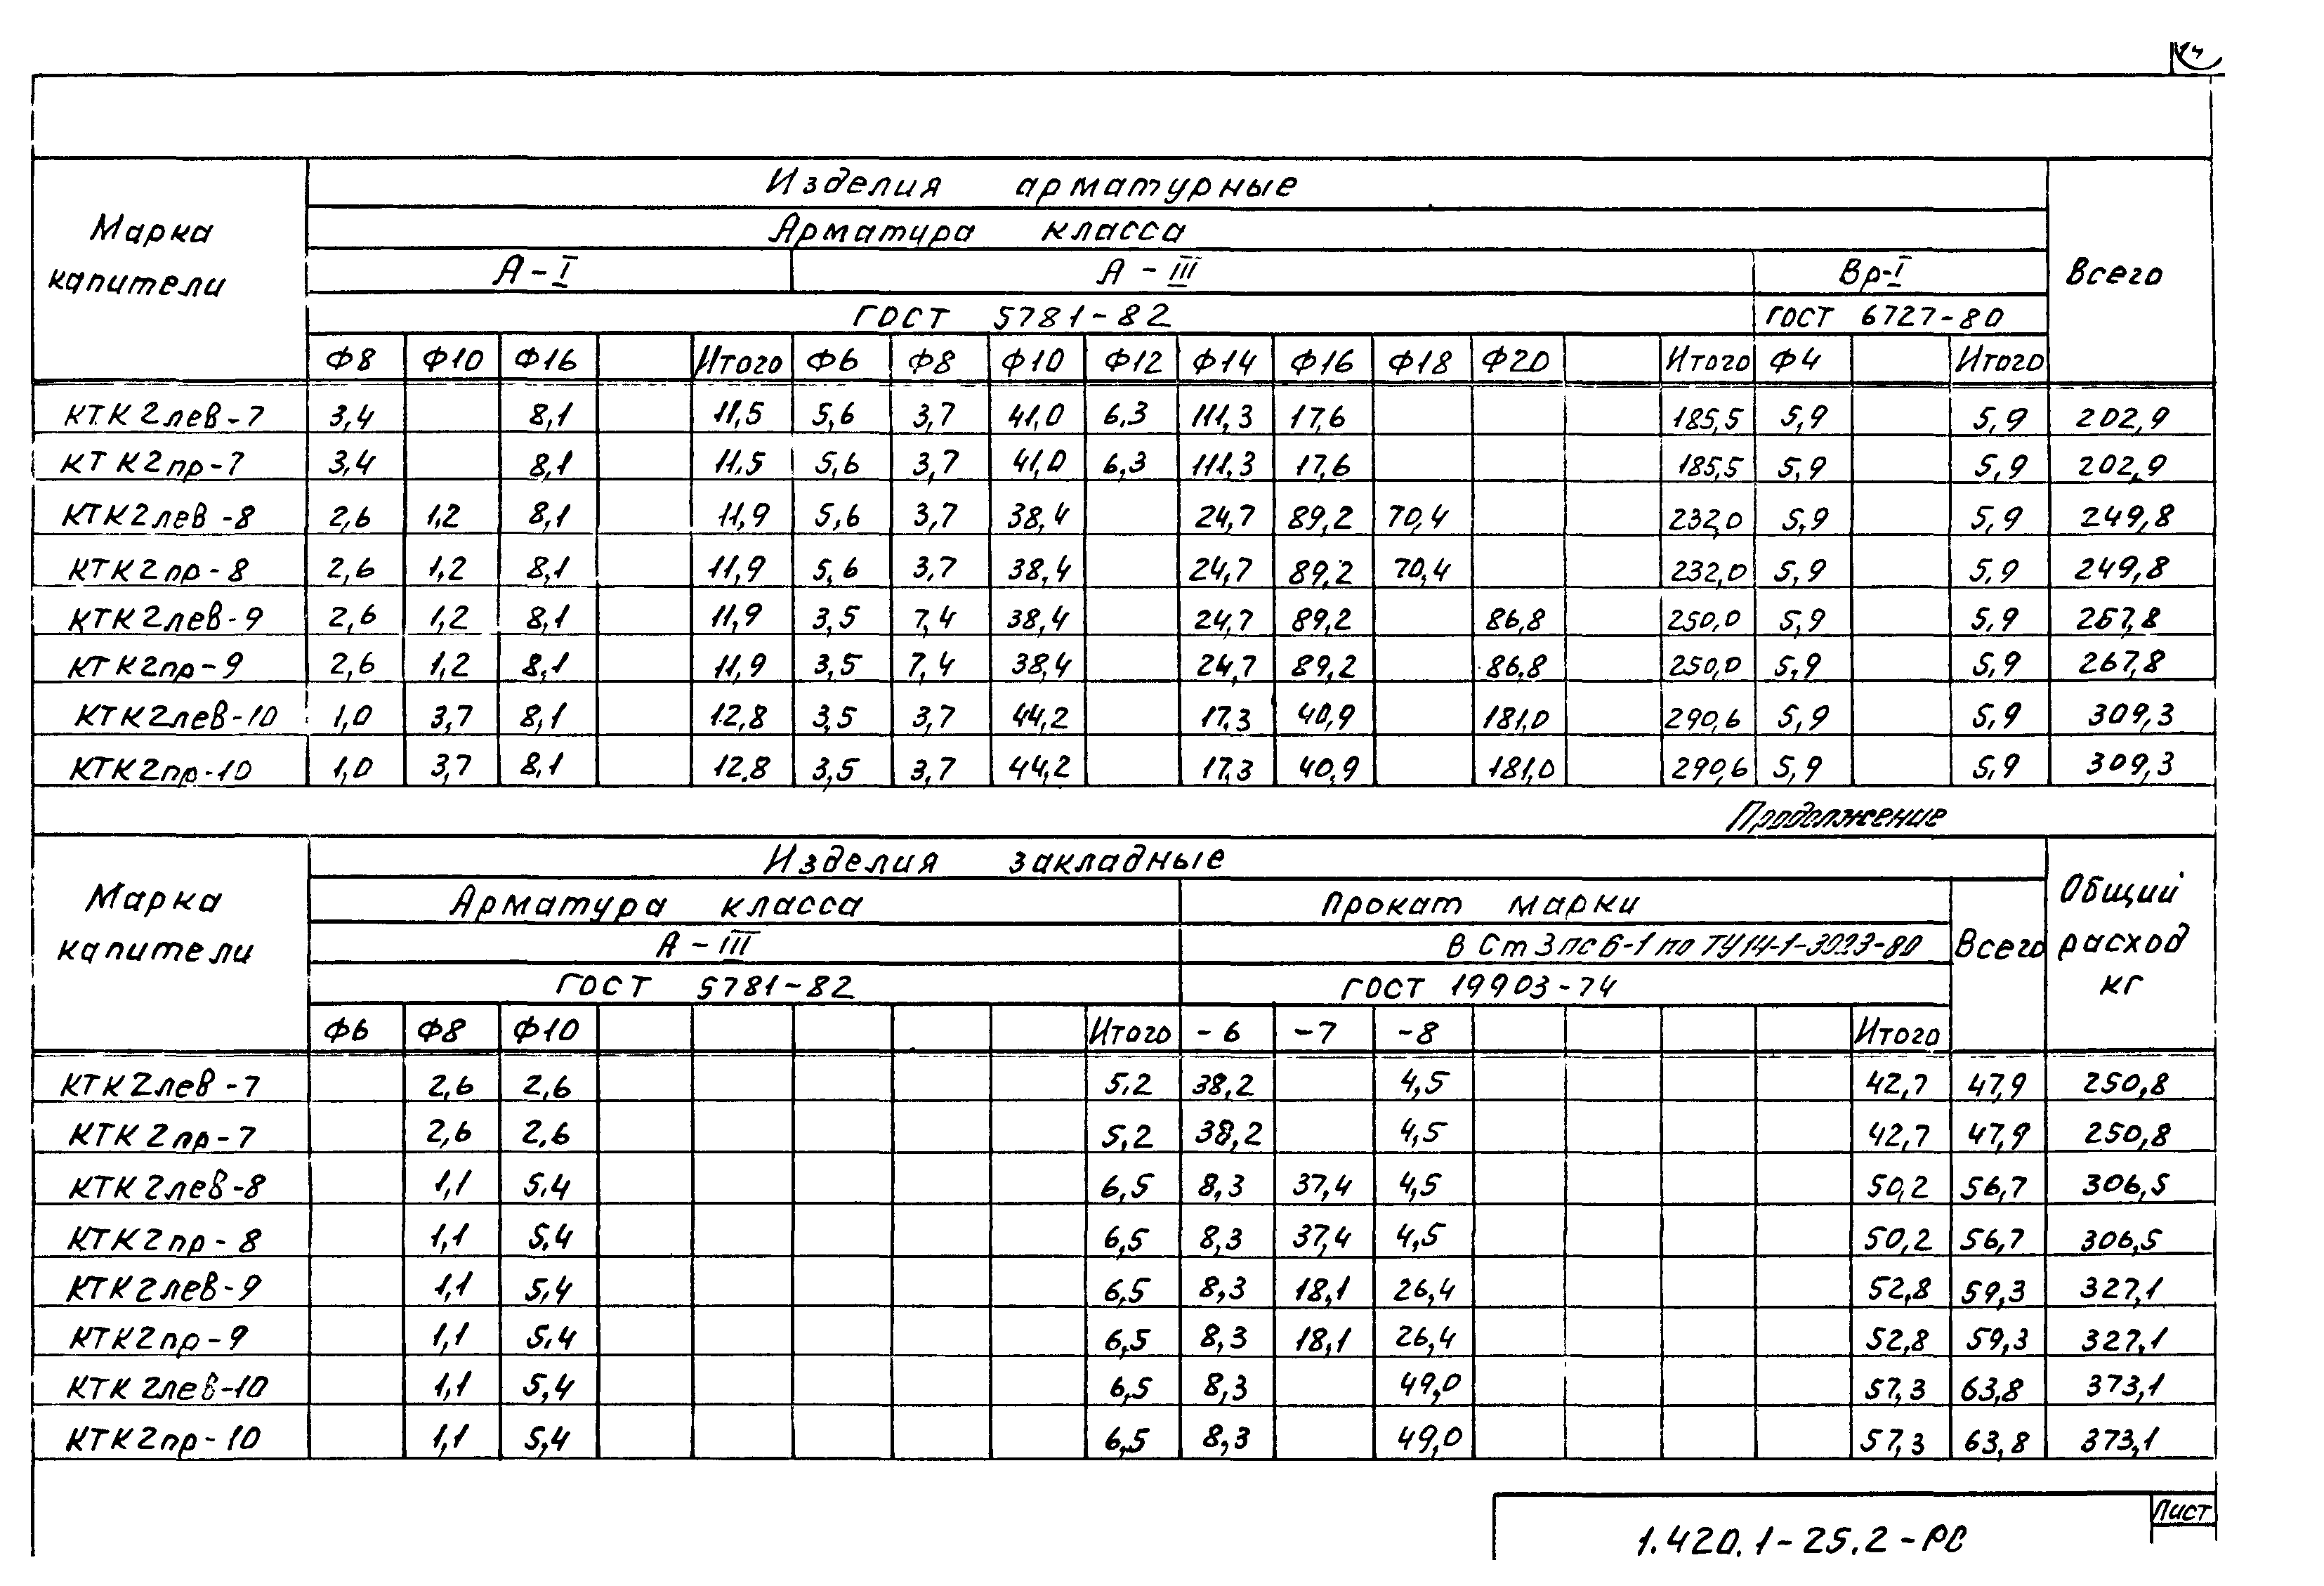 Изделия арматурные
Марка капители Арматура класса Всего
А-I А-III Вр-I
ГОСТ 5781-82 ГОСТ 6727-80
Ф8 Ф10 Ф16 Итого Ф6 Ф8 Ф10 Ф12 Ф14 Ф16 Ф18 Ф20 Итого Ф4 Итого
КТК2лев-7 3,4 8,1 11,5 5,6 3,7 41,0 6,3 111,3 17,6 185,5 5,9 5,9 202,9
КТК2пр-7 3,4 8,1 11,5 5,6 3,7 41,0 6,3 111,3 17,6 185,5 5,9 5,9 202,9
КТК2лев-8 2,6 1,2 8,1 11,9 5,6 3,7 38,4 24,7 89,2 70,4 232,0 5,9 5,9 249,8
КТК2пр-8 2,6 1,2 8,1 11,9 5,6 3,7 38,4 24,7 89,2 70,4 232,0 5,9 5,9 249,8
КТК2лев-9 2,6 1,2 8,1 11,9 3,5 7,4 38,4 24,7 89,2 86,8 250,0 5,9 5,9 267,8
КТК2пр-9 2,6 1,2 8,1 11,9 3,5 7,4 38,4 24,7 89,2 86,8 250,0 5,9 5,9 267,8
КТК2лев-10 1,0 3,7 8,1 12,8 3,5 3,7 44,2 17,3 40,9 181,0 290,6 5,9 5,9 309,3
КТК2пр-10 1,0 3,7 8,1 12,8 3,5 3,7 44,2 17,3 40,9 181,0 290,6 5,9 5,9 309,3
Продолжение
Изделия закладные
Марка капители Арматура класса Прокат марки Всего Общий расход кг
А-III ВСт3пс6-1 по ТУ14-1-3023-80
ГОСТ 5781-82 ГОСТ 19903-74
Ф6 Ф8 Ф10 Итого -6 -7 -8 Итого
КТК2лев-7 2,6 2,6 5,2 38,2 4,5 42,7 47,9 250,8
КТК2пр-7 2,6 2,6 5,2 38,2 4,5 42,7 47,9 250,8
КТК2лев-8 1,1 5,4 6,5 8,3 37,4 4,5 50,2 56,7 306,5
КТК2пр-8 1,1 5,4 6,5 8,3 37,4 4,5 50,2 56,7 306,5
КТК2лев-9 1,1 5,4 6,5 8,3 18,1 26,4 52,8 59,3 327,1
КТК2пр-9 1,1 5,4 6,5 8,3 18,1 26,4 52,8 59,3 327,1
КТК2лев-10 1,1 5,4 6,5 8,3 49,0 57,3 63,8 373,1
КТК2пр-10 1,1 5,4 6,5 8,3 49,0 57,3 63,8 373,1
1.420.1-25.2-РС Лист